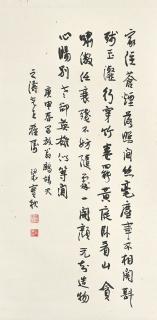 家住蒼煙落照間絲毫塵事不相關斟
殘玉瀣行穿竹卷罷黃庭臥看山貪
嘯傲任衰殘不妨隨處一開顏元知造物
心腸別老卻英雄似等閒
庚申春放翁鷓鴣天
文濤先生雅屬 梁實秋